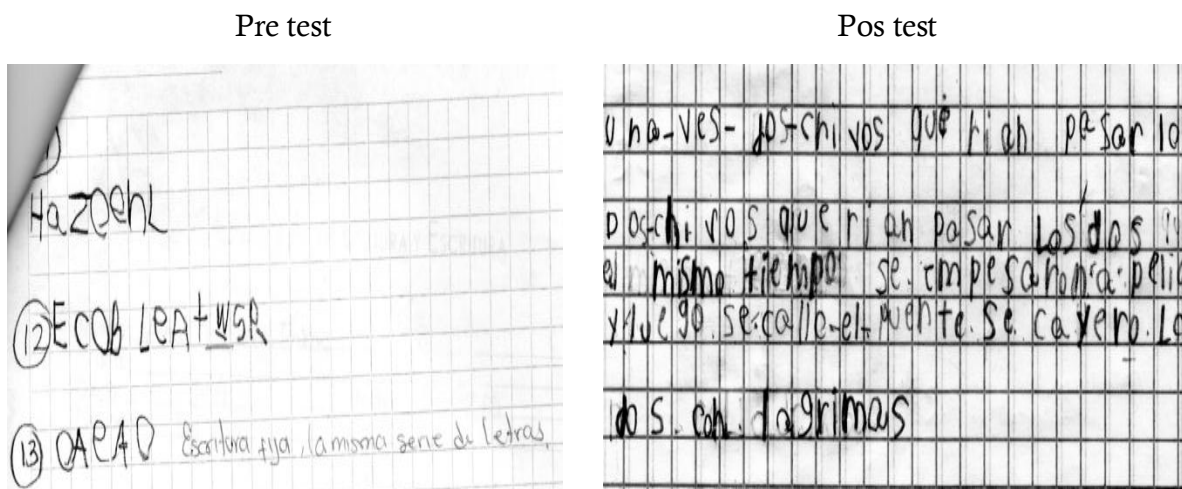 Pre test
Pos test
HazeehL
12 ECOb LeA+WSR
13 OAeAO Escritura fija, la misma serie de letras.
una-ves-dos-chivos que rian pasar lo
Dos-chivos que rian pasar Los dos
el mismo tiempo se. empesaron.a.pelia
y luego.se.calle-el-puente.se.cayero.Lo
dos.con.lagrimas